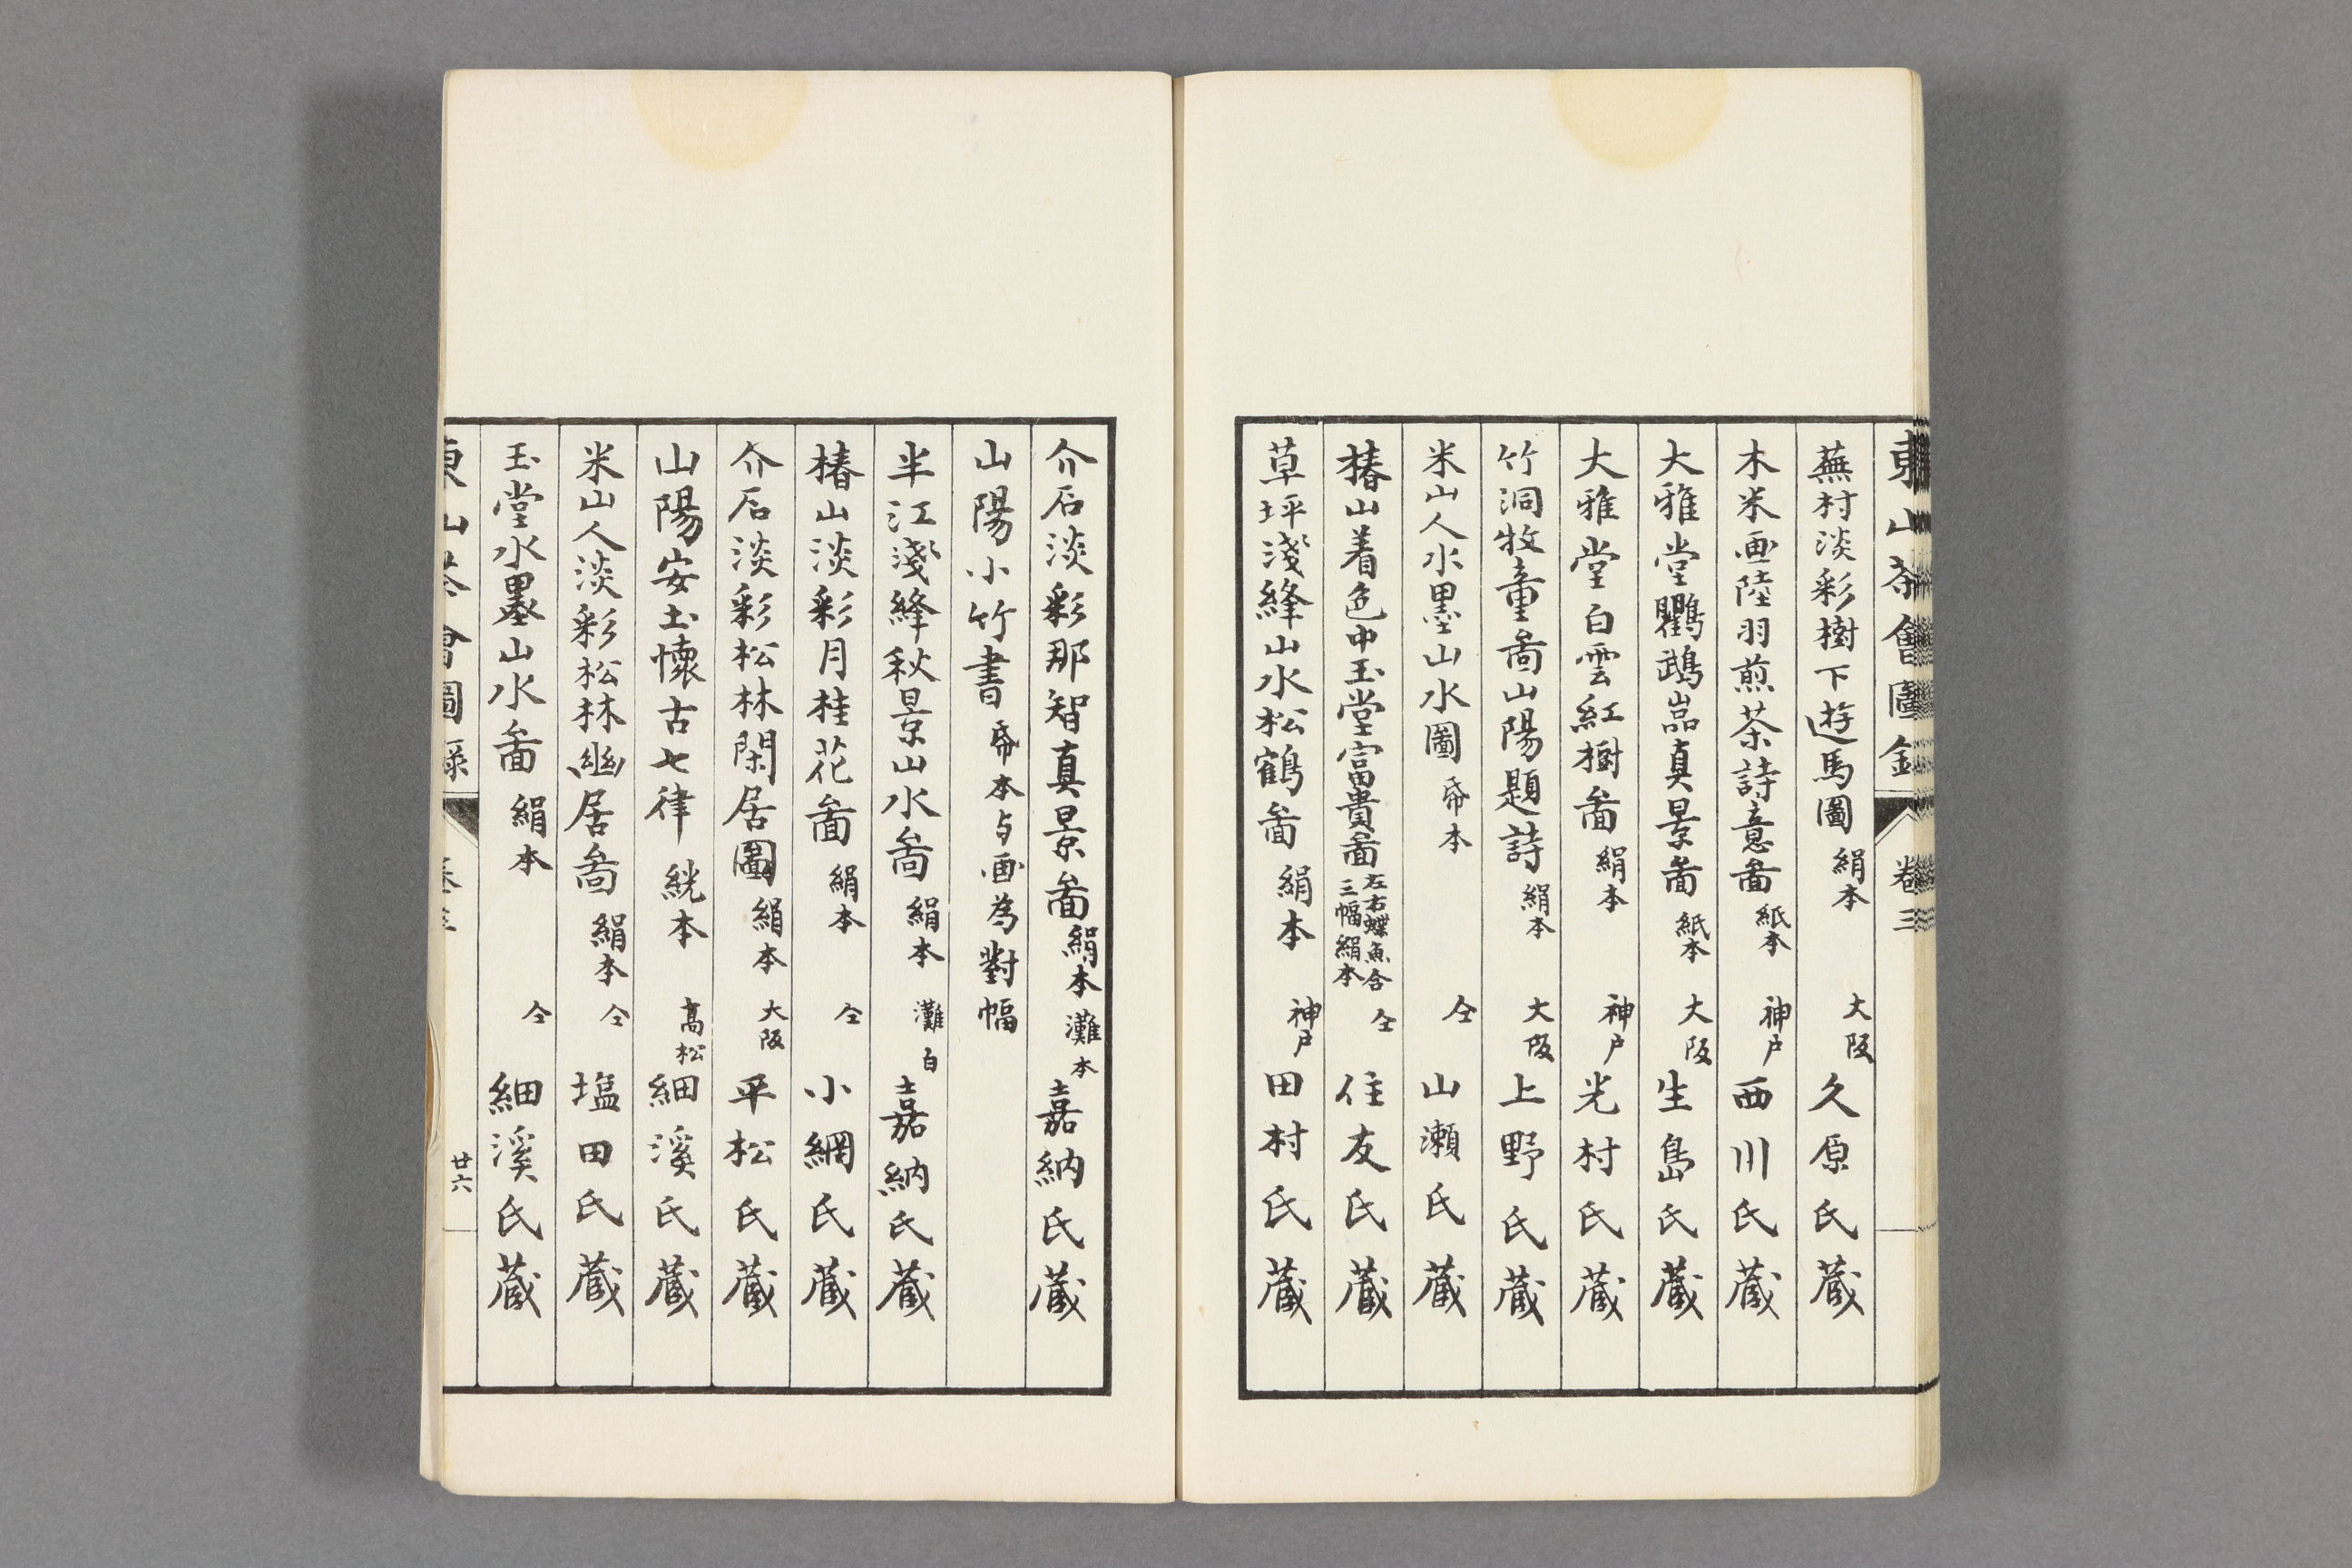 東山茶會圖錄 卷三
蕪村淡彩樹下遊馬圖 絹本 大阪 久原氏蔵
木米画陸羽煎茶詩意啚 紙本 神戸 西川氏蔵
大雅堂鸜鵡嵓真景啚 紙本 大阪 生島氏蔵
大雅堂白雲紅樹啚 絹本 神戸 光村氏蔵
竹洞牧童啚山陽題詩 絹本 大阪 上野氏蔵
米山人水墨山水圖 帋本 仝 山瀬氏蔵
椿山着色中玉堂富貴啚 左右蝶魚合三幅絹本 仝 住友氏蔵
草坪淺絳山水松鶴啚 絹本 神戸 田村氏蔵
介石淡彩那智真景啚 絹本 灘 本嘉納氏蔵
山陽小竹書 帋本与画為對幅
半江淺絳秋景山水啚 絹本 灘 白嘉納氏蔵
椿山淡彩月桂花啚 絹本 仝 小網氏蔵
介石淡彩松林閑居圖 絹本 大阪 平松氏蔵
山陽安土懷古七律 絖本 高松 細溪氏蔵
米山人淡彩松林幽居啚 絹本 仝 塩田氏蔵
玉堂水墨山水啚 絹本 仝 細溪氏蔵
東山茶會圖錄 卷三 廿六